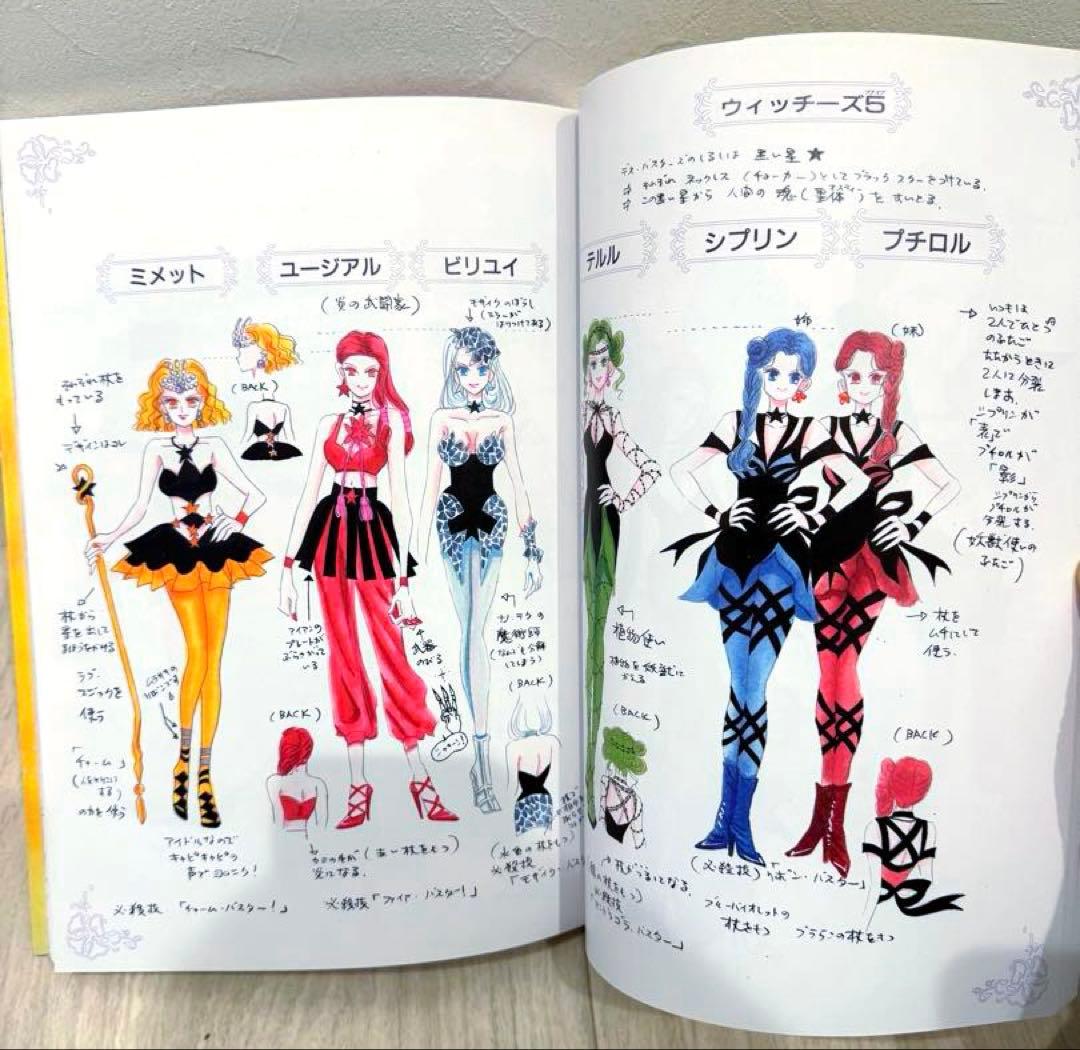 ウィッチーズ5
ファイブ
デス・バスターズのしるしは 黒い星 ★
それぞれ ネックレス (チョーカー)としてブラックスターをつけている。
この黒い星から 人間の 魂(聖体)をすいとる。
ミメット
それぞれ杖を
もっている
デザインはコレ
(BACK)
杖から
星を出して
ラブ・
マジックを
使う
「チャーム」
の力を使う
アイドルなので
キャピキャピの
声でヨロシク!
必殺技 「チャーム・バスター!」
ユージアル
(炎の武闘家)
アイアンの
プレートが
ぶらさがって
いる
武器
のびる
(BACK)
カミの毛が
炎になる。
(赤い杖をもつ)
必殺技「ファイヤ・バスター!」
ビリユイ
モザイクのぼうし
(スターが
はりつけてある)
モザイクの
魔術師
(なんでも分解
してしまう)
(BACK)
(水色の杖をもつ)
必殺技
「モザイク・バス
テルル
植物使い
植物を妖獣に
かえる
(BACK)
杖をもつ)
必殺技
バスター」
シプリン
プチロル
姉
(妹)
いつもは
2人でひとつ
のふたご
たたかうときに
2人に分裂
します。
シプリンが
「表」で
プチロルが
「影」
シプリンから
プチロルが
分裂する。
(妖獣使いの
ふたご)
杖を
ムチにして
使う。
(BACK)
(必殺技)「リボン・バスター」
ブルーバイオレットの
杖をもつ
ブラウンの杖をもつ